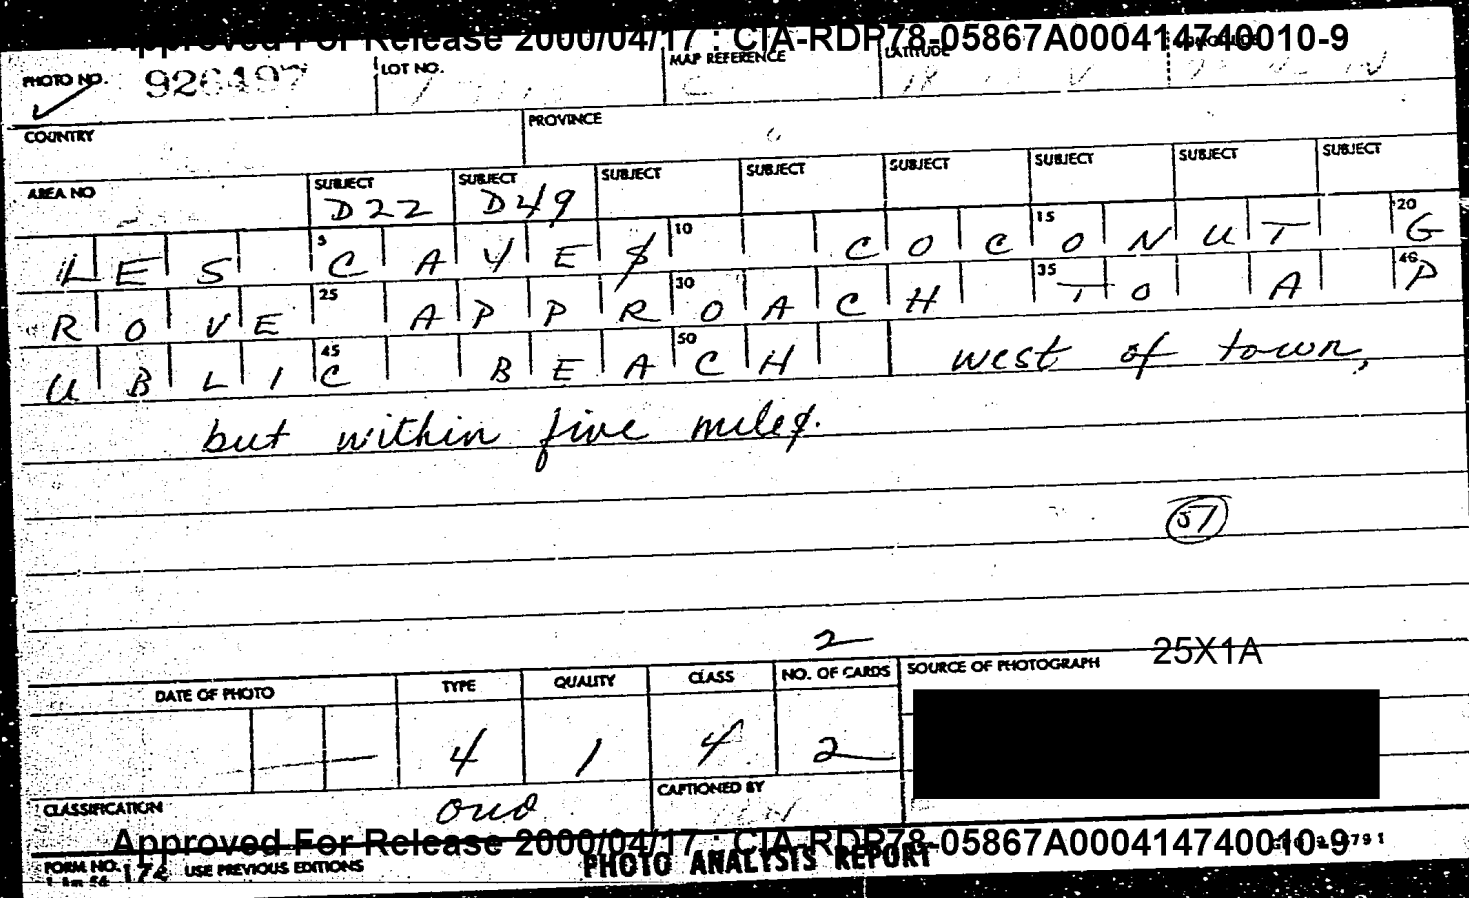 Approved For Release 2000/04/17 : CIA-RDP78-05867A000414740010-9
PHOTO NO. 926497 LOT NO. MAP REFERENCE LATITUDE
COUNTRY PROVINCE
AREA NO SUBJECT D22 SUBJECT D49 SUBJECT SUBJECT SUBJECT SUBJECT SUBJECT SUBJECT
5 10 15 20
LES CAYES COCONUT G
25 30 35 40
ROVE APPROACH TO A P
45 50
UBLIC BEACH west of town,
but within five miles.
57
2
DATE OF PHOTO TYPE QUALITY CLASS NO. OF CARDS SOURCE OF PHOTOGRAPH 25X1A
4 1 4 2
CLASSIFICATION OUO CAPTIONED BY
Approved For Release 2000/04/17 : CIA-RDP78-05867A000414740010-9
FORM NO. USE PREVIOUS EDITIONS PHOTO ANALYSIS REPORT